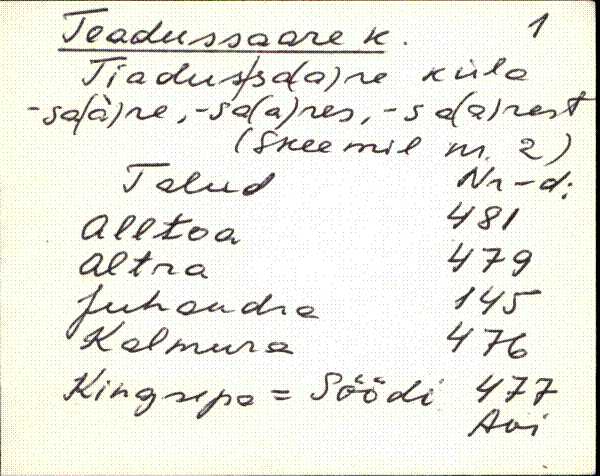 Teadussaare k. 1
Tiadus/sa(a)re küla
-sa(à)re, -sa(a)res, -sa(a)rest
(Skeemil nr. 2)
Talud Nr-d:
Alltoa 481
Altra 479
Juhandra 145
Kalmura 476
Kingsepa = Söödi 477
Avi